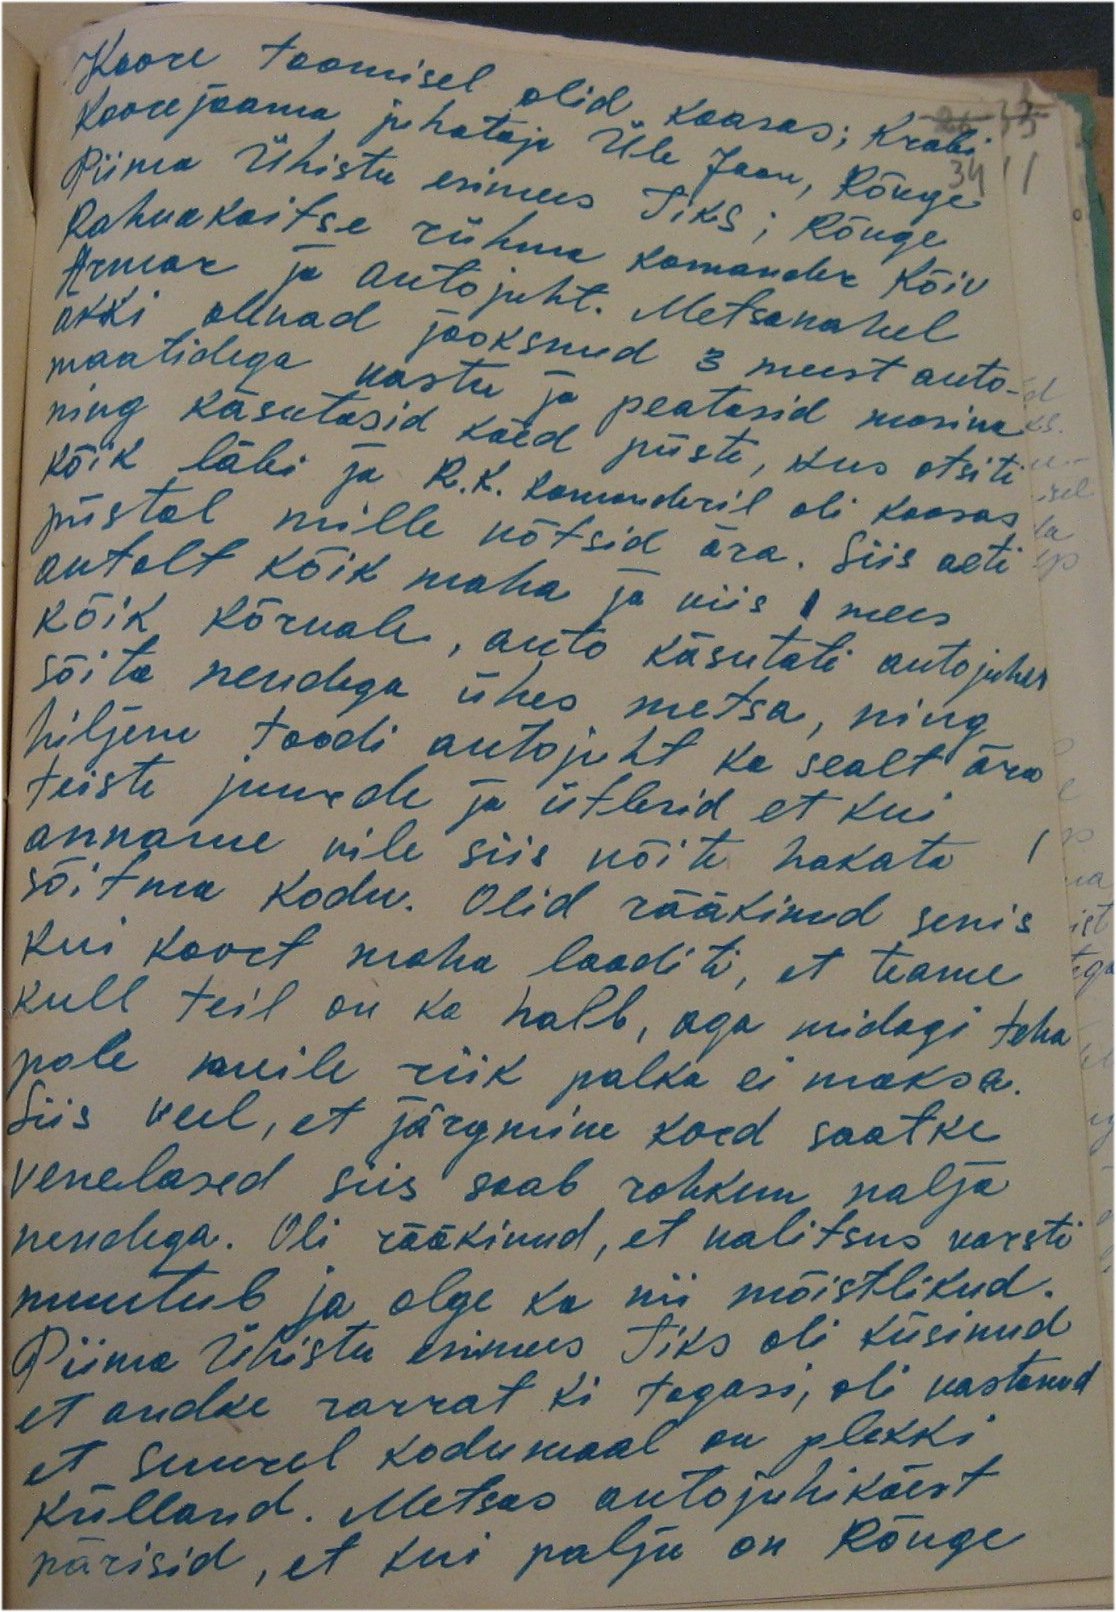 Koore toomisel olid kaasas; Krabi
Koorejaama juhataja Üle Jaan, Rõuge
34
Piima Ühistu esimees Tiks; Rõuge
Rahvakaitse rühma komander Kõiv
Armar ja autojuht. Metsavahel
äkki olevad jooksnud 3 meest auto-
maatidega vastu ja peatasid masina
ning käsutasid käed püsti, kus otsiti
kõik läbi ja R.K. komanderil oli kaasas
püstol mille võtsid ära. Siis aeti
autolt kõik maha ja viis 1 mees
kõik kõrvale, auto käsutati autojuher
sõita nendega ühes metsa, ning
hiljem toodi autojuht ka sealt ära
teiste juurde ja ütlesid et kui
anname vile siis võite hakata
sõitma kodu. Olid rääkinud senis
kui koort maha laaditi, et teame
kull teil on ka halb, aga midagi teha
pole meile riik palka ei maksa.
Siis veel, et järgmine kord saatke
venelased siis saab rohkem nalja
nendega. Oli rääkinud, et valitsus varsti
muutub ja olge ka nii mõistlikud.
Piima Ühistu esimees Tiks oli küsinud
et andke vaarat ki tagasi, oli vastanud
et suurel kodumaal on plekki
külland. Metsas autojuhikäest
pärisid, et kui palju on Rõuge